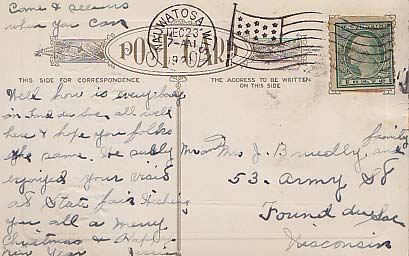 Come & see us
when you can
WAUWATOSA, WIS.
DEC 23
7-AM
POST CARD
THIS SIDE FOR CORRESPONDENCE
THE ADDRESS TO BE WRITTEN
ON THIS SIDE
Well how is everybody
in Fond du Lac all well
here & hope you folks
the same. We sully
enjoyed your visit
at State fair Wishing
you all a merry
Christmas & Happy
new Year Jessie
Mr and Mrs J. Bruedly and
family
53. Army St
Found du Lac
Wisconsin